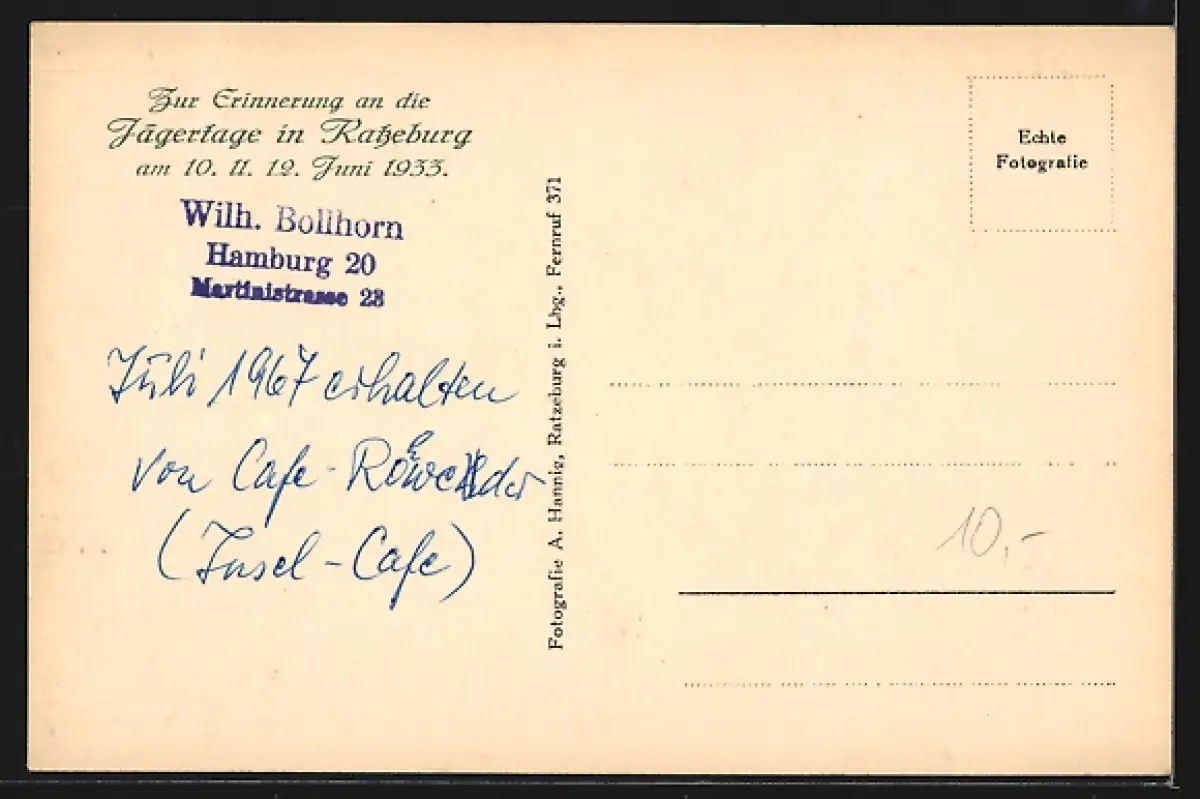 Zur Erinnerung an die
Jägertage in Ratzeburg
am 10. 11. 12. Juni 1933.
Wilh. Bollhorn
Hamburg 20
Martinistrasse 23
Juli 1967 erhalten
von Cafe -
(Insel-Cafe)
Fotografie A. Hannig, Ratzeburg i. Lbg., Fernruf 371
Echte
Fotografie
10,-